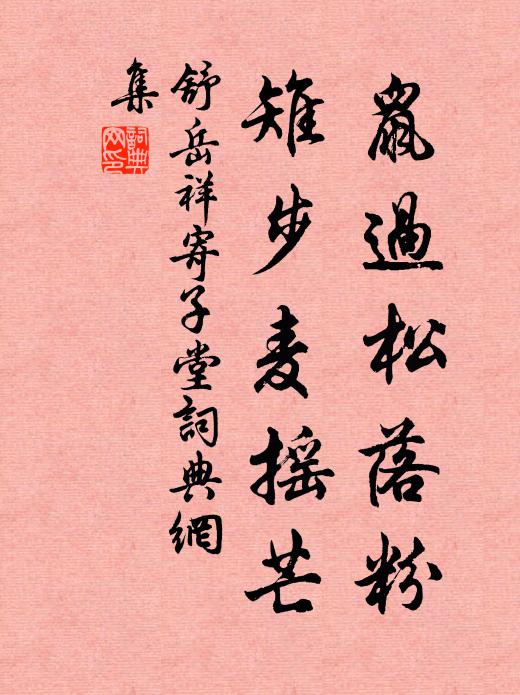 鼠過松落粉
雉步麦摇芒
舒岳祥寄子堂詞典網
集
詞典網印